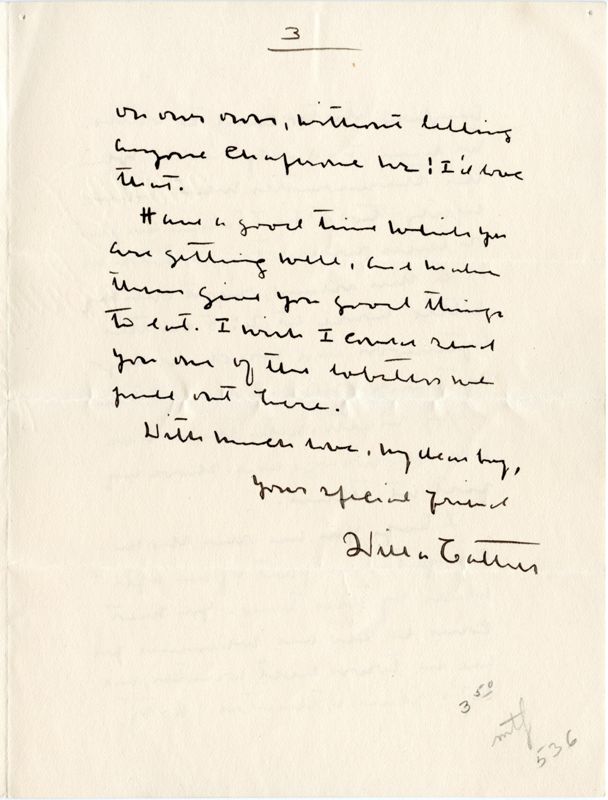 3
on our own, without telling
anyone chaperone us! I'd love
that.
Have a good time while you
are getting well, and make
them give you good things
to eat. I wish I could send
you one of the lobsters we
pull out here.
With much love, my dear boy,
Your special friend
Willa Cather
3 50
mtf
536